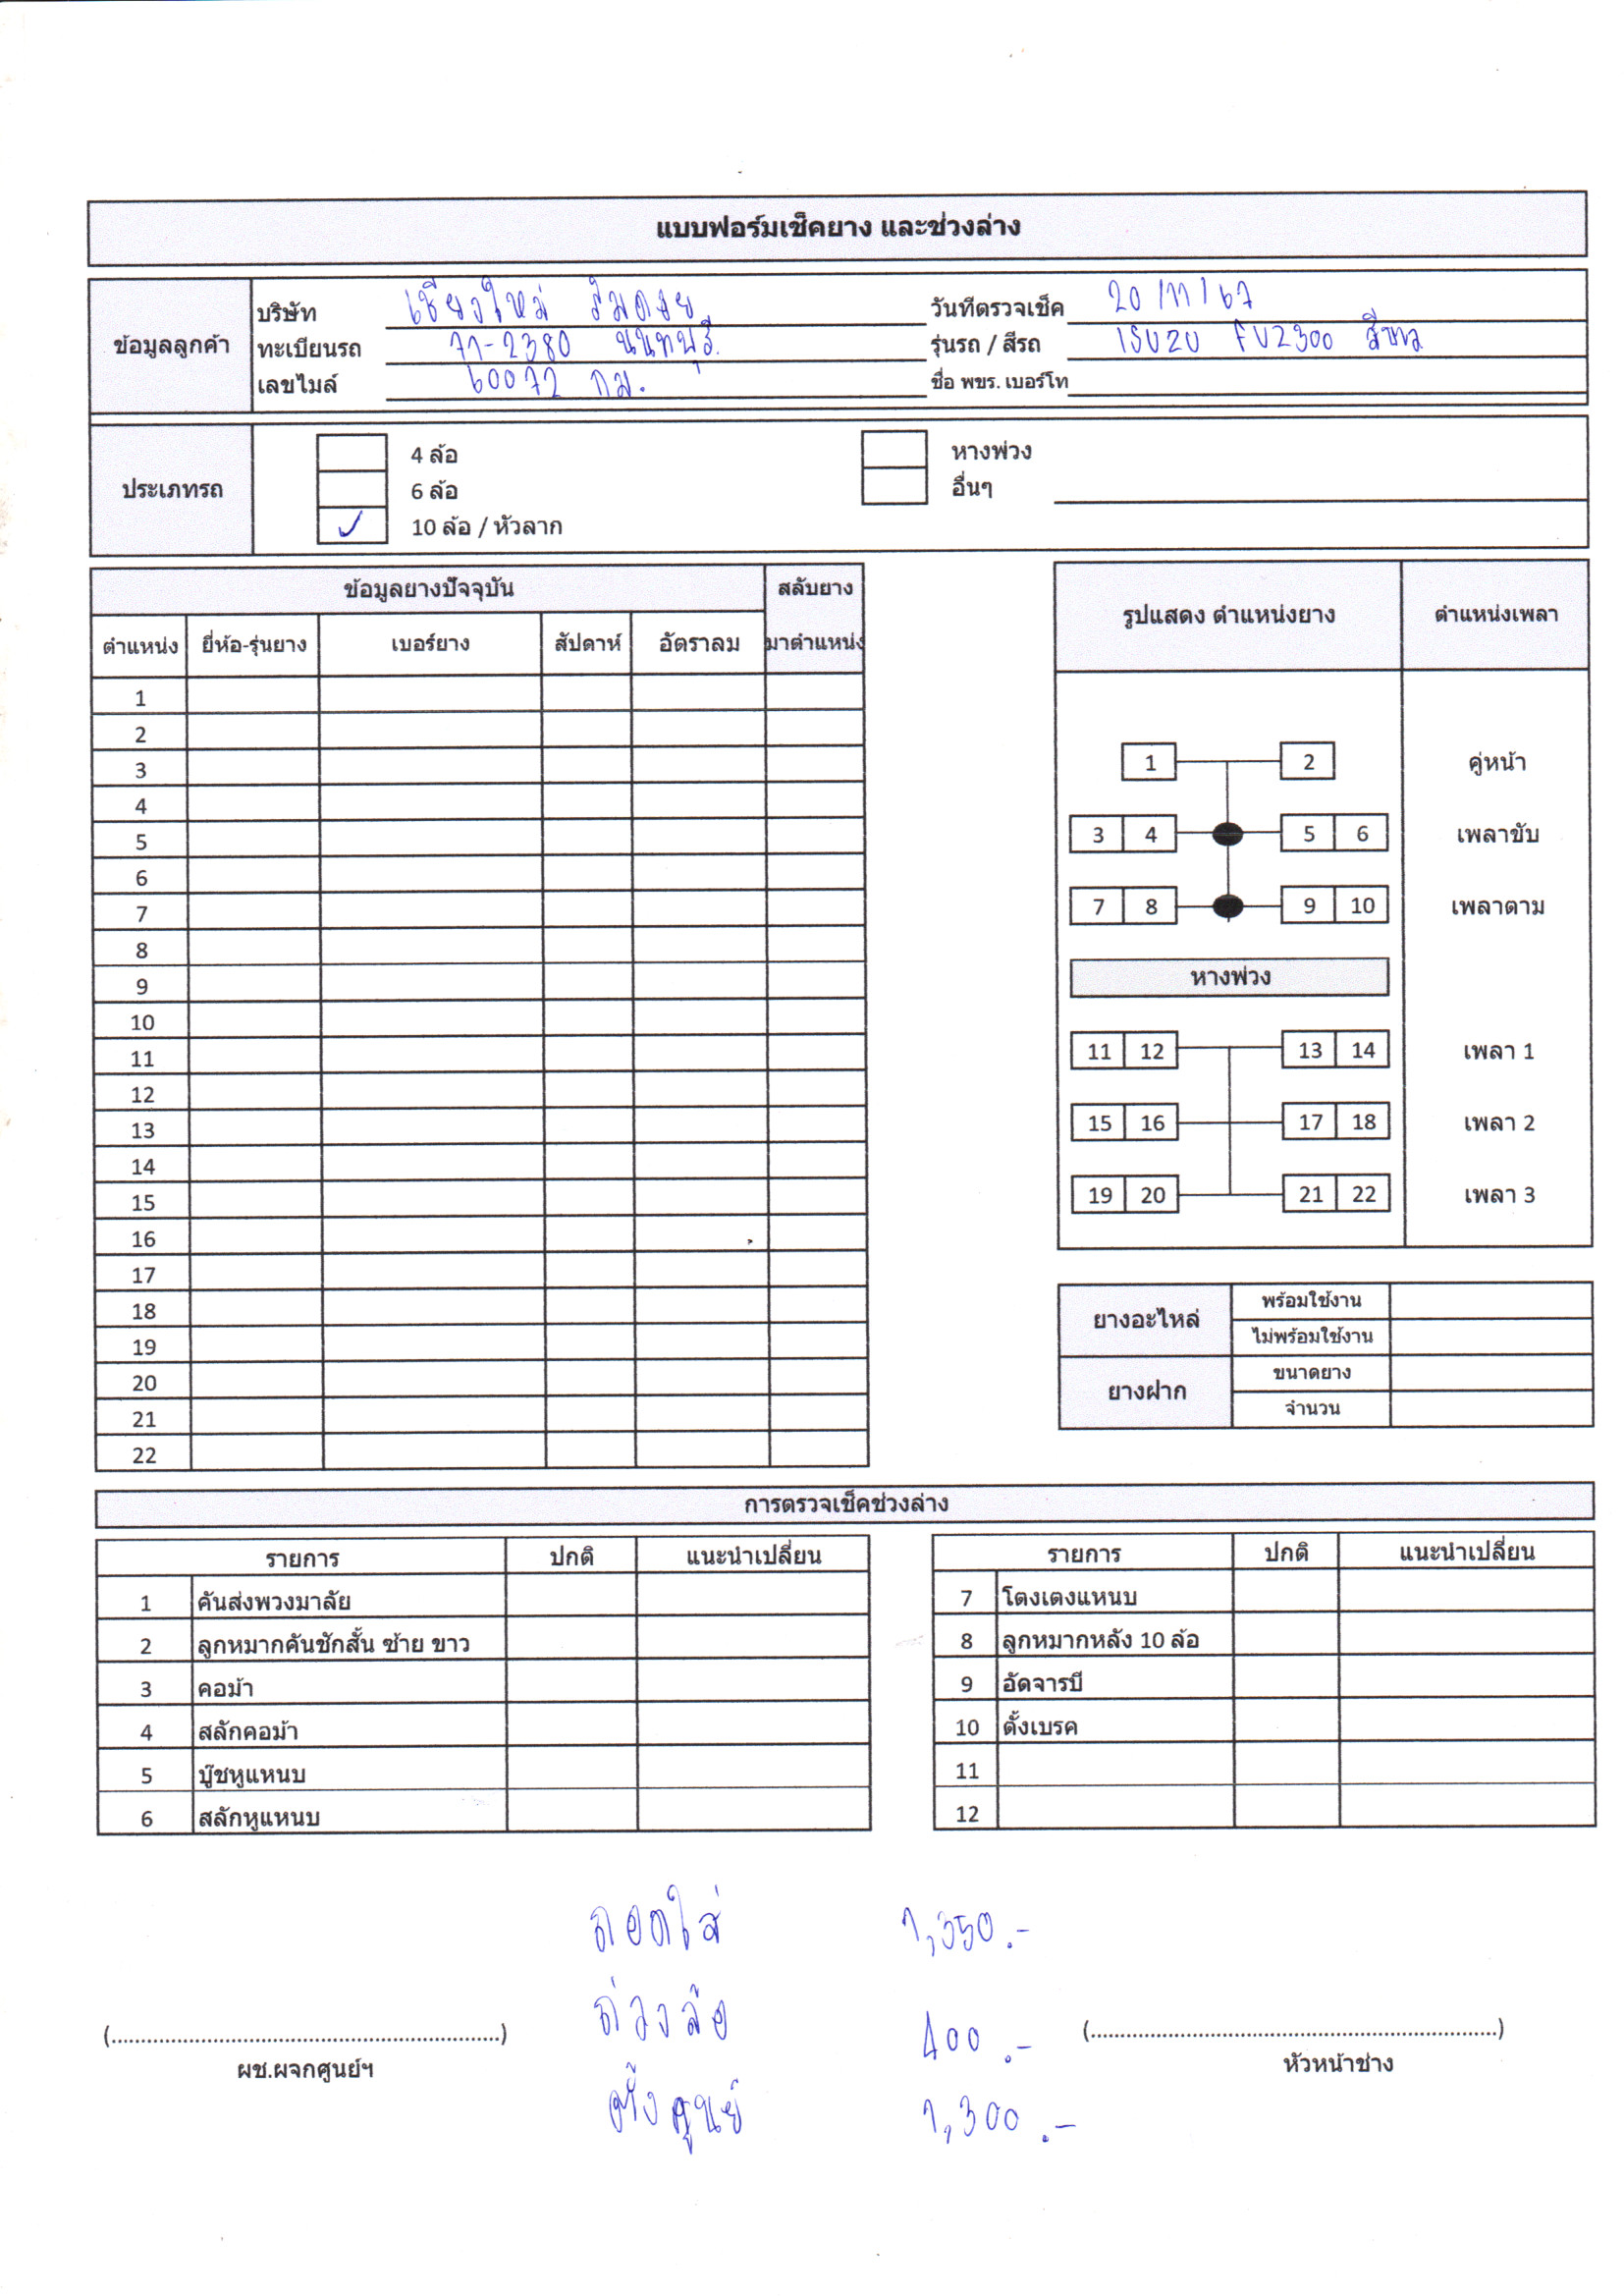 แบบฟอร์มเช็คยาง และช่วงล่าง
ข้อมูลลูกค้า
บริษัท เชียงใหม่ ริมดอย วันที่ตรวจเช็ค 20/11/67
ทะเบียนรถ 71-2380 นนทบุรี รุ่นรถ / สีรถ ISUZU FVZ300 สีขาว
เลขไมล์ 60072 กม. ชื่อ พขร. เบอร์โท
ประเภทรถ
4 ล้อ หางพ่วง
6 ล้อ อื่นๆ
✓ 10 ล้อ / หัวลาก
ข้อมูลยางปัจจุบัน สลับยาง
ตำแหน่ง ยี่ห้อ-รุ่นยาง เบอร์ยาง สัปดาห์ อัตราลม มาตำแหน่ง
1
2
3
4
5
6
7
8
9
10
11
12
13
14
15
16
17
18
19
20
21
22
รูปแสดง ตำแหน่งยาง ตำแหน่งเพลา
1 2 คู่หน้า
3 4 5 6 เพลาขับ
7 8 9 10 เพลาตาม
หางพ่วง
11 12 13 14 เพลา 1
15 16 17 18 เพลา 2
19 20 21 22 เพลา 3
ยางอะไหล่ พร้อมใช้งาน
ไม่พร้อมใช้งาน
ยางฝาก ขนาดยาง
จำนวน
การตรวจเช็คช่วงล่าง
รายการ ปกติ แนะนำเปลี่ยน
1 คันส่งพวงมาลัย
2 ลูกหมากคันชักสั้น ซ้าย ขาว
3 คอม้า
4 สลักคอม้า
5 บู๊ชหูแหนบ
6 สลักหูแหนบ
รายการ ปกติ แนะนำเปลี่ยน
7 โตงเตงแหนบ
8 ลูกหมากหลัง 10 ล้อ
9 อัดจารบี
10 ตั้งเบรค
11
12
ถอดใส่ 1,350.-
ถ่วงล้อ 400.-
ตั้งศูนย์ 1,300.-
(..................................................................)
ผช.ผจกศูนย์ฯ
(......................................................................)
หัวหน้าช่าง